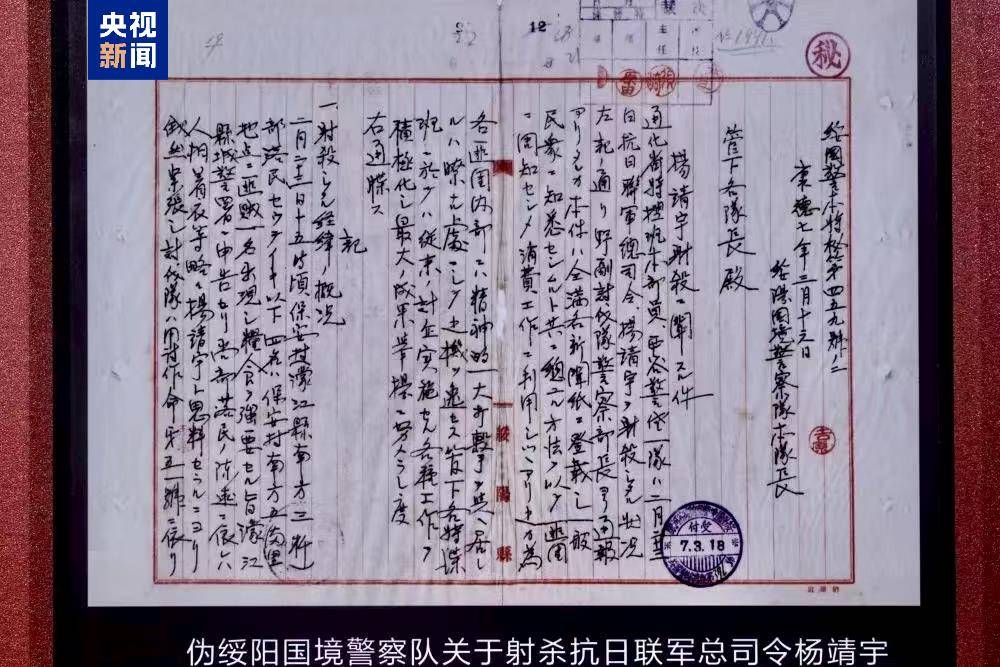 央视
新闻
秘
綏國警本特秘第四五九號ノ二
康德七年三月十三日
綏陽國境警察隊本隊長
管下各隊長殿
楊靖宇射殺ニ關スル件
通化省特捜班本部員西谷警佐一隊ハ二月二十三
日抗日聯軍總司令楊靖宇ヲ射殺シタル狀況
左記ノ通リ野副討伐隊警察部長ヨリ通報
アリタルカ本件ハ全滿各新聞紙ニ登載シ一般
民衆ニ知悉セシムルト共ニ總ユル方法ヲ以テ匪團
ニ周知セシメ消費工作ニ利用シツツアリ之カ為
各匪團内部ニハ精神的一大打擊ヲ與ヘ居
ルハ瞭 處ニシテ此機ヲ逸セス管下各特諜
班ニ於テハ従来ノ計企実施セル各種工作ヲ
積極化シ最大ノ成果擧揚ニ努メラレ度
右通牒ス
記
一 射殺シタル経緯ノ概況
二月二十三日十五時頃保安村濛江縣南方三粁
部落民 以下四名ハ保安村南方五
地点ニ匪賊一名出現シ糧食ヲ強要セル旨濛江
縣城警署ニ申告セリ尚部落民ノ陳述ニ依レハ
人相着衣等略々楊靖宇ト思料セラルルニヨリ
俄然緊張シ討伐隊ハ 討作命第五號ニ依リ
綏陽縣
受付
7.3.18
伪绥阳国境警察队关于射杀抗日联军总司令杨靖宇